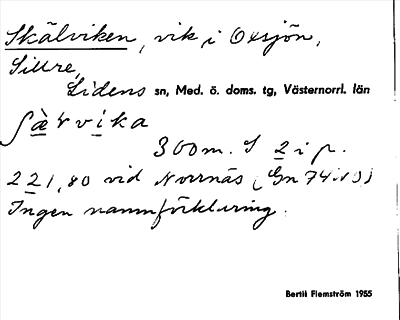 Skälviken, vik i Oxsjön,
Sillre,
Lidens sn, Med. ö. doms. tg, Västernorrl. län
ʃàrvika
300m. S 2 i p.
221,80 vid Norrnäs (Gn 74
Ingen namnförklaring.
Bertil Flemström 1955